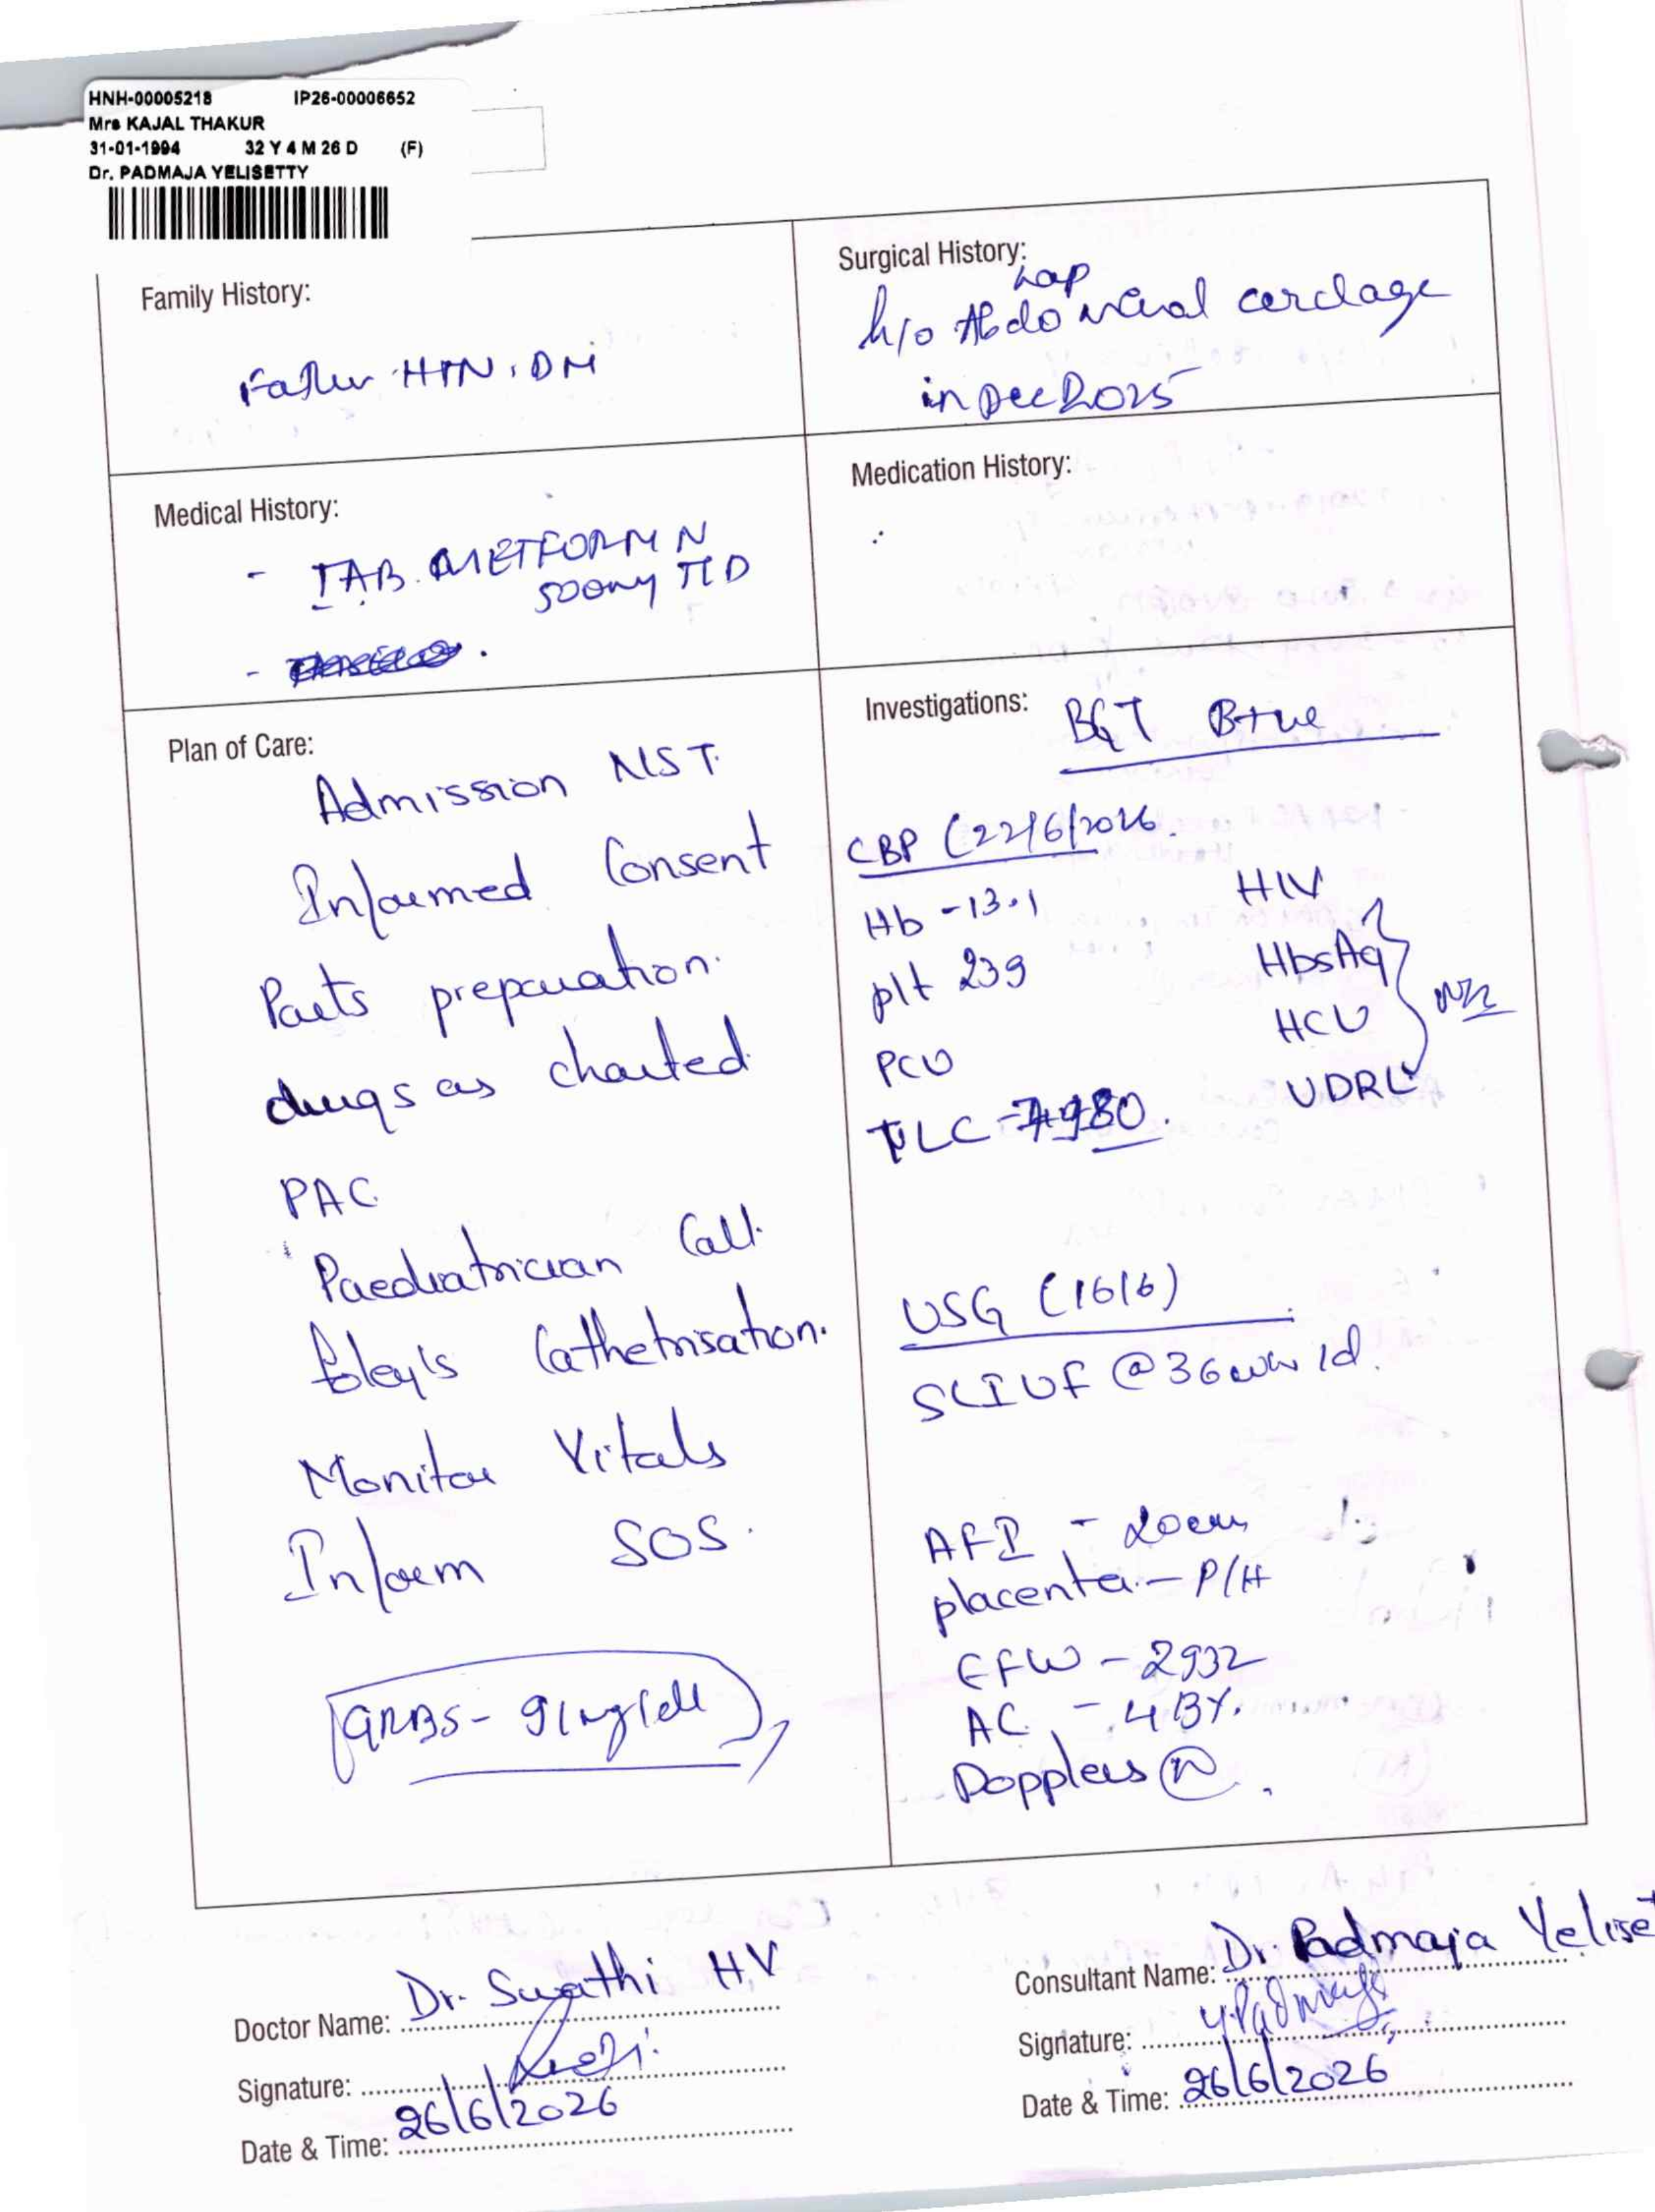 HNH-00005218 IP26-00006652
Mrs KAJAL THAKUR
31-01-1994 32 Y 4 M 26 D (F)
Dr. PADMAJA YELISETTY
Family History:
Father HTN, DM
Surgical History:
Lap
h/o Abdominal cerclage
in Dec 2025
Medical History:
- TAB. METFORMIN
500mg TID
-
Medication History:
Plan of Care:
Admission NST.
Informed Consent
Parts preparation.
drugs as charted
PAC
Paediatrician Call.
Foley's Cathetrisation.
Monitor Vitals
Inform SOS.
GRBS - 91mg/dl
Investigations: BGT B+ve
CBP (22/6/2026.
Hb - 13.1
plt 239
PCV
TLC - 7980.
HIV
HbsAg
HCV
VDRL
USG (16/6)
SLIUF @ 36wks 1d.
AFI - 20cm
placenta - P/H
EFW - 2932
AC - 43%.
Dopplers N.
Doctor Name: Dr. Swathi HV
Signature:
Date & Time: 26/6/2026
Consultant Name: Dr. Padmaja Yelise
Signature: Y.Padmaja
Date & Time: 26/6/2026